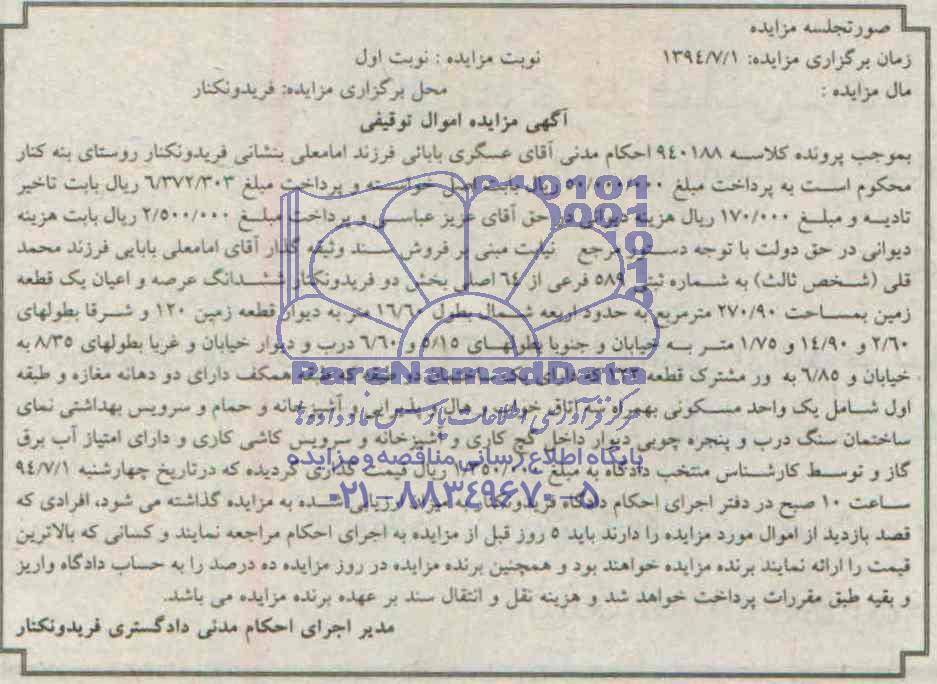 صورتجلسه مزایده
زمان برگزاری مزایده: ۱۳۹٤/۷/۱ نوبت مزایده : نوبت اول
مال مزایده : محل برگزاری مزایده: فریدونکنار
آگهی مزایده اموال توقیفی
بموجب پرونده کلاسه ۹٤۰۱۸۸ احکام مدنی آقای عسگری بابائی فرزند امامعلی بنشانی فریدونکنار روستای بنه کنار
محکوم است به پرداخت مبلغ ۵۰/۰۰۰/۰۰۰ ریال بابت اصل خواسته و پرداخت مبلغ ٦/۳۷۲/۳۰۳ ریال بابت تاخیر
تادیه و مبلغ ۱۷۰/۰۰۰ ریال هزینه دیوانی در حق آقای عزیز عباسی و پرداخت مبلغ ۲/۵۰۰/۰۰۰ ریال بابت هزینه
دیوانی در حق دولت با توجه دستور مرجع نیابت مبنی بر فروش سند وثیقه گذار آقای امامعلی بابایی فرزند محمد
قلی (شخص ثالث) به شماره ثبتی ۵۸۹ فرعی از ٦٤ اصلی بخش دو فریدونکنار ششدانگ عرصه و اعیان یک قطعه
زمین بمساحت ۲۷۰/۹۰ مترمربع به حدود اربعه شمال بطول ۱٦/٦۰ متر به دیوار قطعه زمین ۱۲۰ و شرقا بطولهای
۲/٦۰ و ۱٤/۹۰ و ۱/۷۵ متر به خیابان و جنوبا بطولهای ۵/۱۵ و ٦/٦۰ درب و دیوار خیابان و غربا بطولهای ۸/۳۵ به
خیابان و ٦/۸۵ به ور مشترک قطعه ۱۲۲ که دارای یک ساختمان دو طبقه که طبقه همکف دارای دو دهانه مغازه و طبقه
اول شامل یک واحد مسکونی بهمراه سه اتاق خواب و هال و پذیرایی و آشپزخانه و حمام و سرویس بهداشتی نمای
ساختمان سنگ درب و پنجره چوبی دیوار داخل گچ کاری و آشپزخانه و سرویس کاشی کاری و دارای امتیاز آب برق
گاز و توسط کارشناس منتخب دادگاه به مبلغ ریال قیمت گذاری گردیده که درتاریخ چهارشنبه ۹٤/۷/۱
ساعت ۱۰ صبح در دفتر اجرای احکام دادگاه فریدونکنار به میزان ارزیابی شده به مزایده گذاشته می شود، افرادی که
قصد بازدید از اموال مورد مزایده را دارند باید ۵ روز قبل از مزایده به اجرای احکام مراجعه نمایند و کسانی که بالاترین
قیمت را ارائه نمایند برنده مزایده خواهند بود و همچنین برنده مزایده در روز مزایده ده درصد را به حساب دادگاه واریز
و بقیه طبق مقررات پرداخت خواهد شد و هزینه نقل و انتقال سند بر عهده برنده مزایده می باشد.
مدیر اجرای احکام مدنی دادگستری فریدونکنار
ParsNamadData
مرکز فرآوری اطلاعات پارس نماد داده ها
پایگاه اطلاع رسانی مناقصه و مزایده
۰۲۱-۸۸۳۴۹۶۷۰-۵